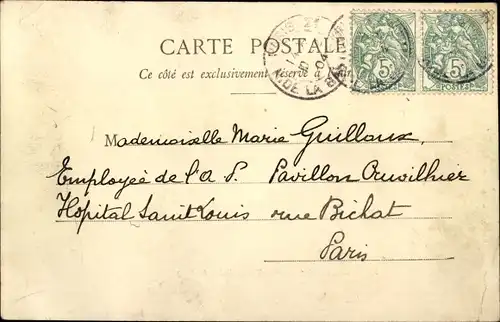 CARTE POSTALE
Ce côté est exclusivement réservé à
PARIS 21
DE LA
04
5c 5c
POSTES
Mademoiselle Marie Guilloux
Employée de l'A P. Pavillon Cruvilhier
Hôpital Saint Louis rue Bichat
Paris